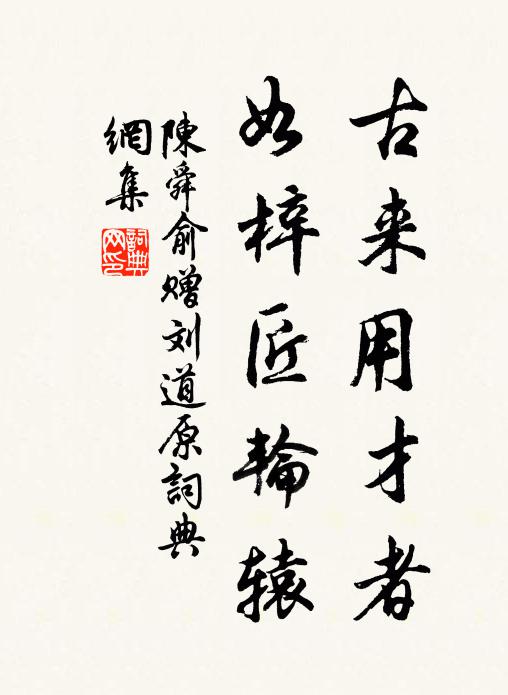 古来用才者
如梓匠輪辕
陳舜俞赠刘道原詞典
網集
詞典网印